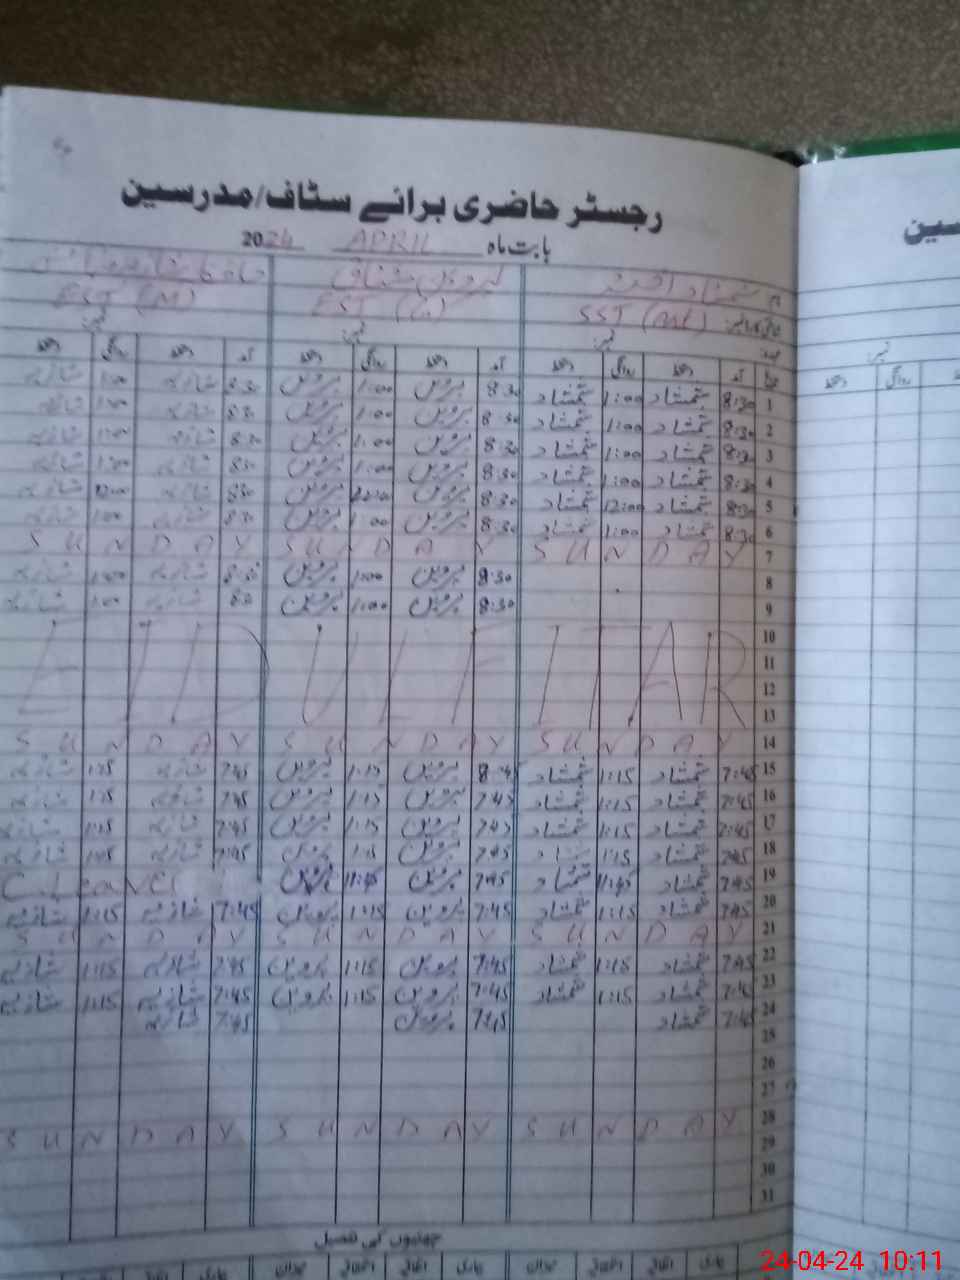 رجسٹر حاضری برائے سٹاف/مدرسین
بابت ماہ APRIL 2024
شمشاد اختر پروین مشتاق
SST EST EST (M)
آمد دستخط روانگی دستخط آمد دستخط روانگی دستخط آمد دستخط روانگی دستخط
1 8:30 شمشاد 1:00 شمشاد 8:30 پروین 1:00 پروین 8:30 شازیہ 1:00 شازیہ
2 8:30 شمشاد 1:00 شمشاد 8:30 پروین 1:00 پروین 8:30 شازیہ 1:00 شازیہ
3 8:30 شمشاد 1:00 شمشاد 8:30 پروین 1:00 پروین 8:30 شازیہ 1:00 شازیہ
4 8:30 شمشاد 1:00 شمشاد 8:30 پروین 1:00 پروین 830 شازیہ 1:00 شازیہ
5 8:30 شمشاد 12:00 شمشاد 8:30 پروین 12:00 پروین 830 شازیہ 12:00 شازیہ
6 8:30 شمشاد 1:00 شمشاد 8:30 پروین 1:00 پروین 830 شازیہ 1:00 شازیہ
7 SUNDAY SUNDAY SUNDAY
8 8:30 پروین 1:00 پروین 8:30 شازیہ 1:00 شازیہ
9 8:30 پروین 1:00 پروین 830 شازیہ 1:00 شازیہ
10
11
EID UL FITAR
12
13
14 SUNDAY SUNDAY SUNDAY
15 7:45 شمشاد 1:15 شمشاد پروین 1:15 پروین 7:45 شازیہ 1:15 شازیہ
16 7:45 شمشاد 1:15 شمشاد 7:45 پروین 1:15 پروین 7:45 شازیہ 1:15 شازیہ
17 7:45 شمشاد 1:15 شمشاد 7:45 پروین 1:15 پروین 7:45 شازیہ 1:15 شازیہ
18 7:45 شمشاد 1:15 شمشاد 7:45 پروین 1:15 پروین 7:45 شازیہ شازیہ
19 7:45 شمشاد 11:45 شمشاد 7:45 پروین 11:45 پروین C.Leave
20 7:45 شمشاد 1:15 شمشاد 7:45 پروین 1:15 پروین 7:45 شازیہ 1:15 شازیہ
21 SUNDAY SUNDAY SUNDAY
22 7:45 شمشاد 1:15 شمشاد 7:45 پروین 1:15 پروین 7:45 شازیہ 1:15 شازیہ
23 7:45 شمشاد 1:15 شمشاد 7:45 پروین 1:15 پروین 7:45 شازیہ 1:15 شازیہ
24 7:45 شمشاد 7:45 پروین 7:45 شازیہ
25
26
27
28 SUNDAY SUNDAY SUNDAY
29
30
31
چھٹیوں کی تفصیل
24-04-24 10:11